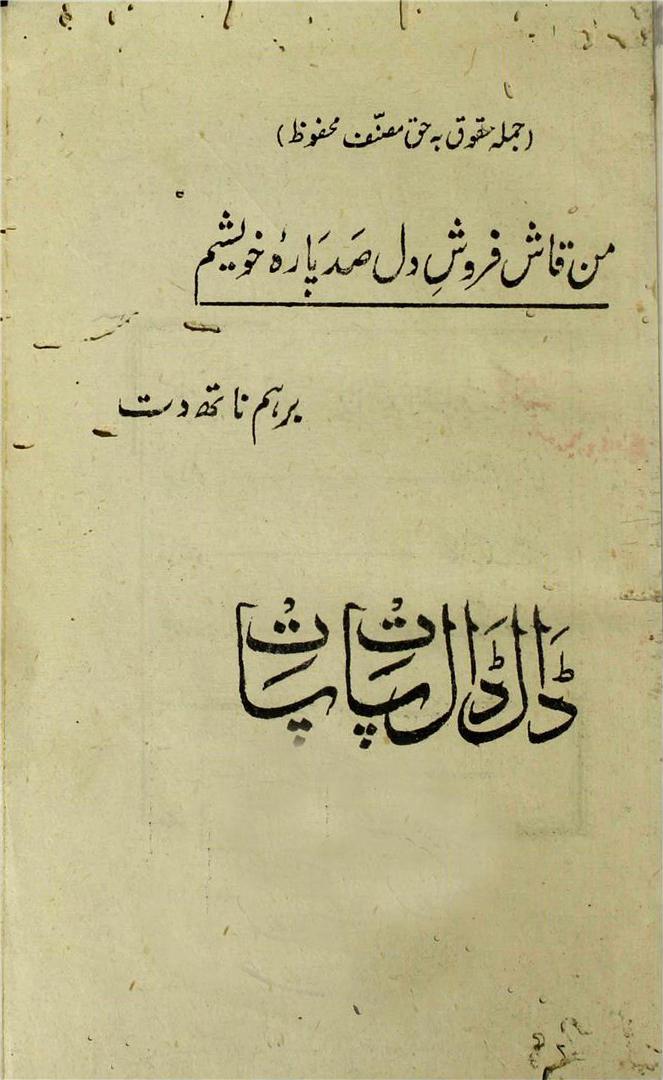 (جملہ حقوق بہ حق مصنّف محفوظ)
من قاش فروشِ دل صَد پَارۂ خویشیم
برہم ناتھ دت
ڈَال ڈَال پَات پَات